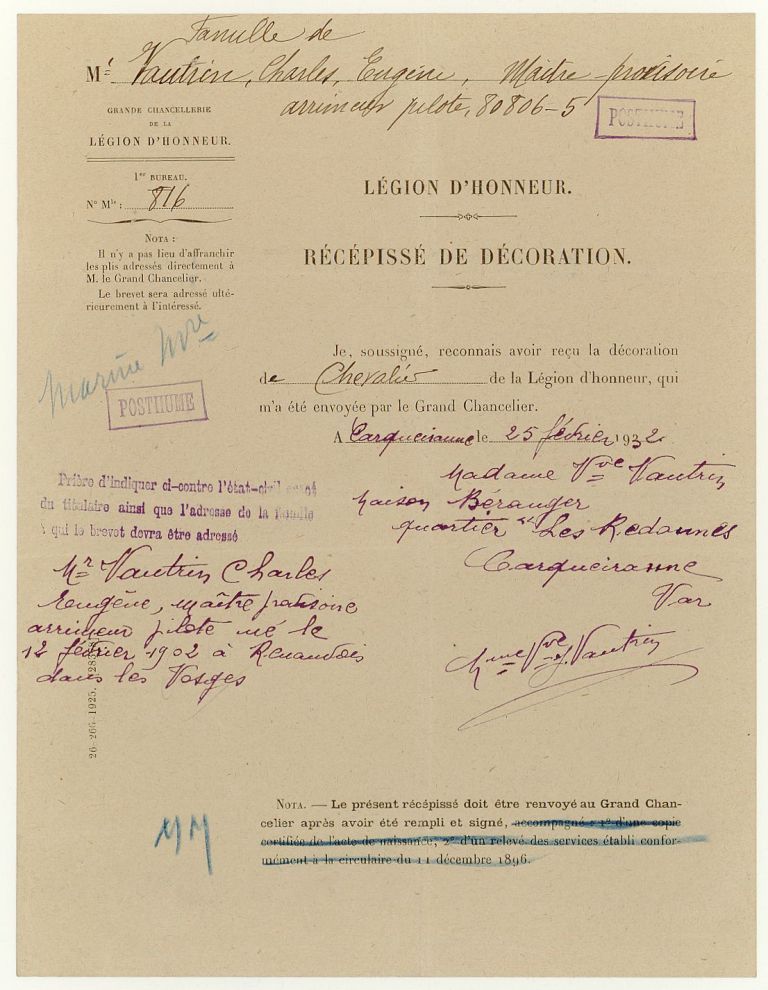 Famille de
Mr Vautrin, Charles, Eugène, Maître provisoire
arrimeur pilote, 80806-5
POSTHUME
GRANDE CHANCELLERIE
DE LA
LÉGION D'HONNEUR.
1er BUREAU.
No Mle : 816
NOTA :
Il n'y a pas lieu d'affranchir
les plis adressés directement à
M. le Grand Chancelier.
Le brevet sera adressé ulté-
rieurement à l'intéressé.
LÉGION D'HONNEUR.
RÉCÉPISSÉ DE DÉCORATION.
Marine
POSTHUME
Je, soussigné, reconnais avoir reçu la décoration
de Chevalier de la Légion d'honneur, qui
m'a été envoyée par le Grand Chancelier.
A Carqueiranne le 25 février 1932
Madame Vve Vautrin
Maison Béranger
quartier Les Redonnes
Carqueiranne
Var
Mme Vve J. Vautrin
Prière d'indiquer ci-contre l'état-civil
du titulaire ainsi que l'adresse de la famille
à qui le brevet devra être adressé
Mr Vautrin Charles
Eugène, maître provisoire
arrimeur pilote né le
12 février 1902 à Renauvois
dans les Vosges
26-266-1925.
NOTA. — Le présent récépissé doit être renvoyé au Grand Chan-
celier après avoir été rempli et signé, accompagné : 1° d'une copie
certifiée de l'acte de naissance; 2° d'un relevé des services établi confor-
mément à la circulaire du 11 décembre 1896.